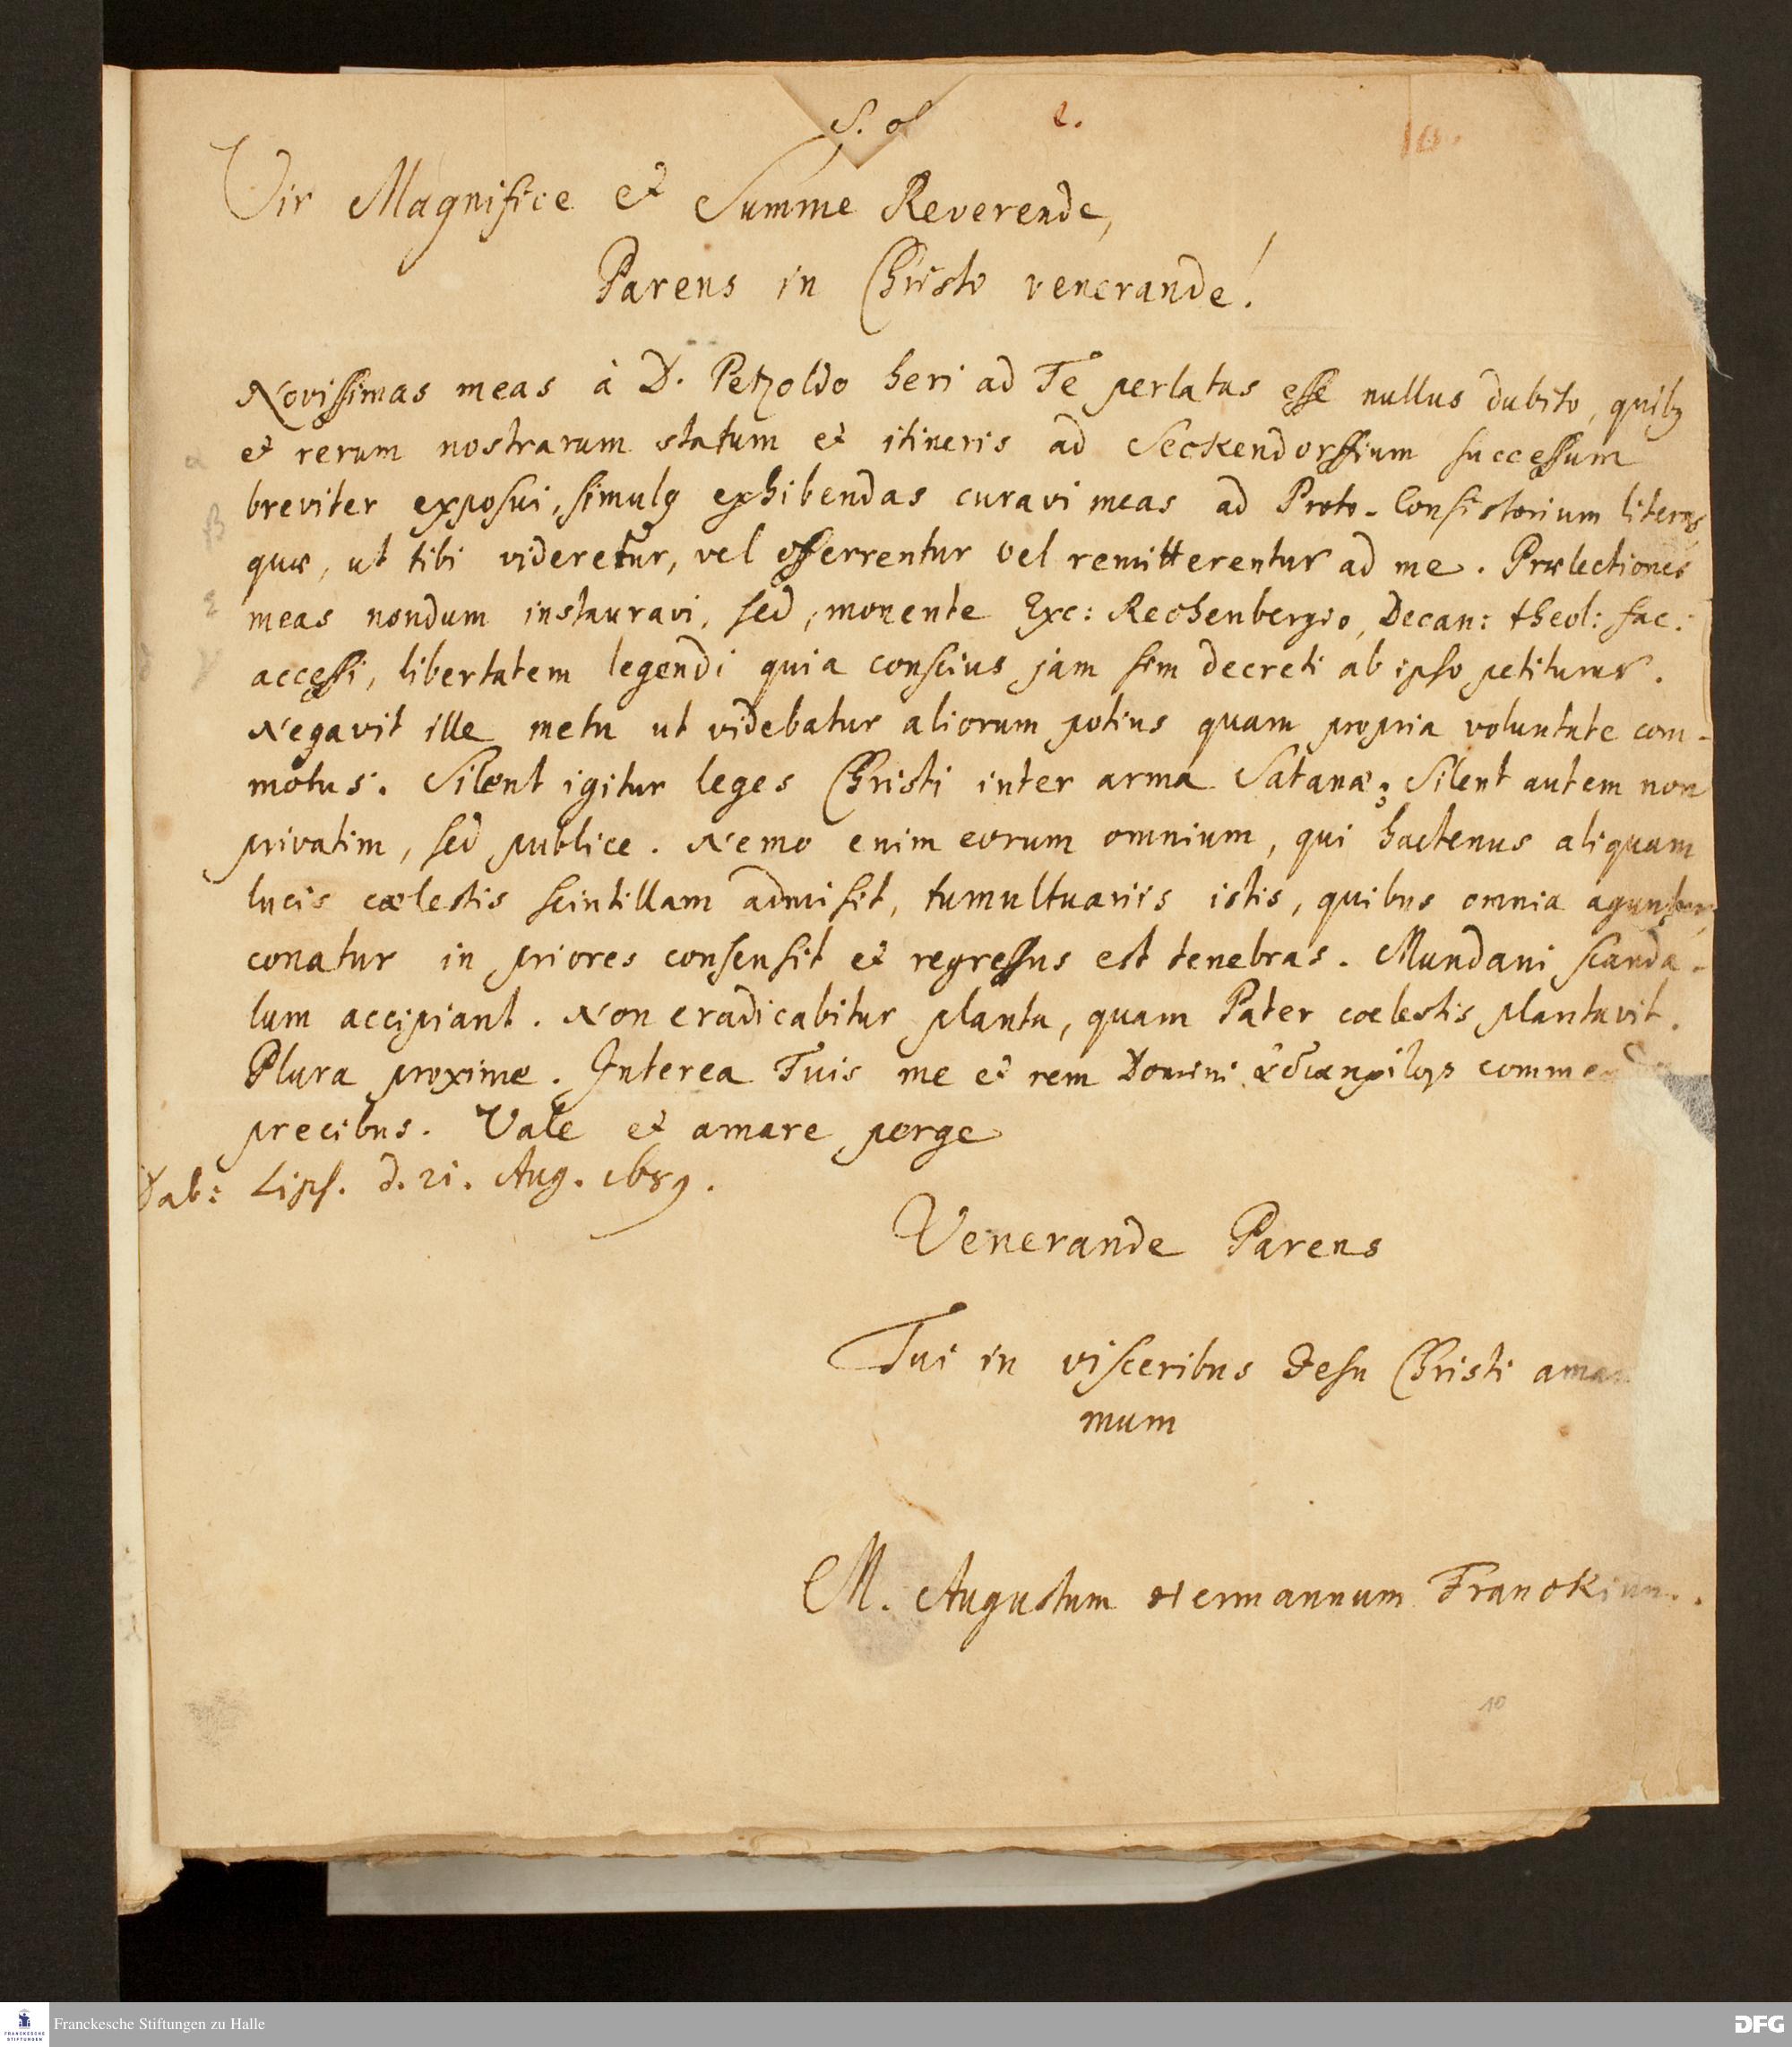 S.
e.
10.
Vir Magnifice et Summe Reverende,
Parens in Christo venerande!
Novissimas meas à D. Petzoldo heri ad Te perlatas esse nullus dubito, quibꝫ
et rerum nostrarum statum et itineris ad Seckendorffium successum
breviter exposui, simulq exhibendas curavi meas ad Proto-Consistorium literas
quæ, ut tibi videretur, vel offerrentur vel remitterentur ad me. Prælectiones
meas nondum instauravi, sed, monente Exc: Rechenbergio, Decan: theol: fac:
accessi, libertatem legendi quia conscius jam sim decreti ab ipso petiturus.
Negavit ille metu ut videbatur aliorum potius quam propria voluntate com-
motus. Silent igitur leges Christi inter arma Satanæ; Silent autem non
privatim, sed publice. Nemo enim eorum omnium, qui hactenus aliquam
lucis cælestis scintillam admisit, tumultuariis istis, quibus omnia aguntur,
conatur in priores consensit et regressus est tenebras. Mundani scanda-
lum accipiant. Non eradicabitur planta, quam Pater cœlestis plantavit.
Plura proxime. Interea Tuis me et rem Domini commendo
precibus. Vale et amare perge
Dab: Lips. d. 21. Aug. 1689.
Venerande Parens
Tui in visceribus Jesu Christi aman
mum
M. Augustum Hermannum Franckium.
10
Franckesche Stiftungen zu Halle
FRANCKESCHE
STIFTUNGEN
DFG